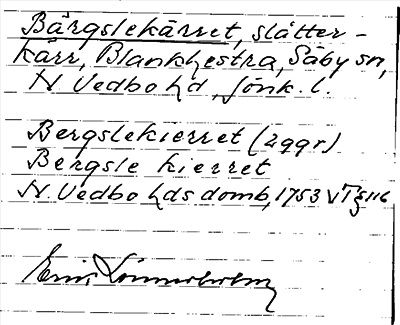 Bärgslekärret, slåtter-
kärr, Blankhestra, Säby sn,
N. Vedbo hd, Jönk. l.
Bergslekierret (2ggr)
Bergsle kierret
N. Vedbo hds domb, 1753 VTg 116